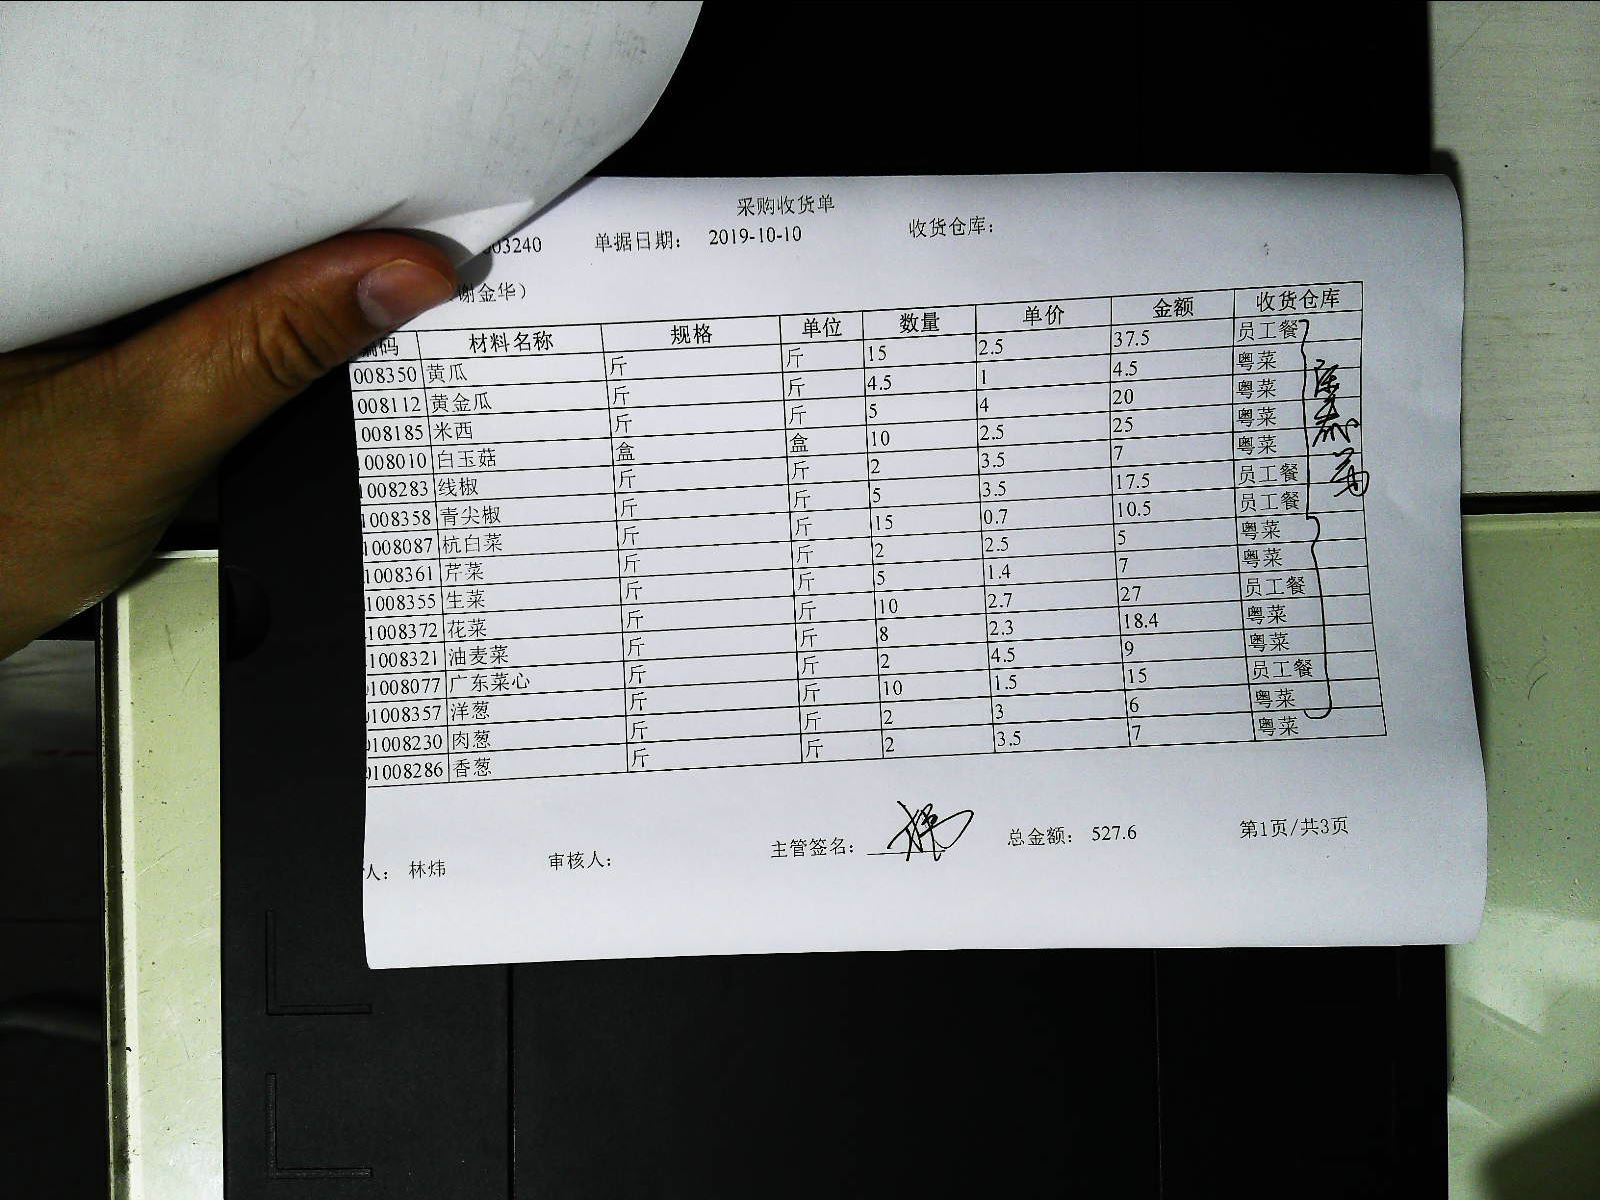 采购收货单
03240 单据日期： 2019-10-10 收货仓库：
谢金华）
编码 材料名称 规格 单位 数量 单价 金额 收货仓库
008350 黄瓜 斤 斤 15 2.5 37.5 员工餐
008112 黄金瓜 斤 斤 4.5 1 4.5 粤菜
1008185 米西 斤 斤 5 4 20 粤菜
1008010 白玉菇 盒 盒 10 2.5 25 粤菜
1008283 线椒 斤 斤 2 3.5 7 粤菜
1008358 青尖椒 斤 斤 5 3.5 17.5 员工餐
1008087 杭白菜 斤 斤 15 0.7 10.5 员工餐
1008361 芹菜 斤 斤 2 2.5 5 粤菜
1008355 生菜 斤 斤 5 1.4 7 粤菜
1008372 花菜 斤 斤 10 2.7 27 员工餐
1008321 油麦菜 斤 斤 8 2.3 18.4 粤菜
01008077 广东菜心 斤 斤 2 4.5 9 粤菜
01008357 洋葱 斤 斤 10 1.5 15 员工餐
01008230 肉葱 斤 斤 2 3 6 粤菜
01008286 香葱 斤 斤 2 3.5 7 粤菜
人： 林炜 审核人： 主管签名： 总金额： 527.6 第1页/共3页